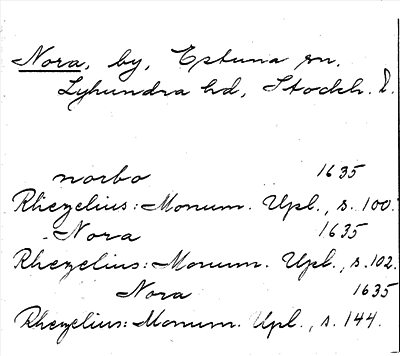 Nora, by, Estuna sn.
Lyhundra hd, Stockh. l.
norbo 1635
Rhezelius: Monum. Upl., s. 100.
Nora 1635
Rhezelius: Monum. Upl., s. 102.
Nora 1635
Rhezelius: Monum. Upl., s. 144.